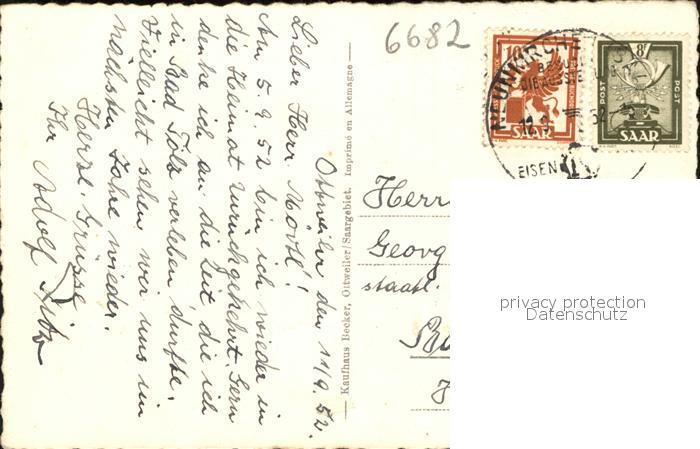 6682
Ottweiler den 11/9. 52.
Lieber Herr Mörtl!
Am 5. 9. 52 bin ich wieder in
die Heimat zurückgekehrt. Gern
denke ich an die Zeit die ich
in Bad Tölz verleben durfte.
Vielleicht sehen wir uns im
nächsten Jahre wieder.
Herzl. Grüsse
Ihr Adolf
Kaufhaus Becker, Ottweiler/Saargebiet. Imprimé en Allemagne
NEUNKIRCHEN
EISEN
SAAR
8F
POST
POST
SAAR
Herrn
Georg
staatl.
privacy protection
Datenschutz